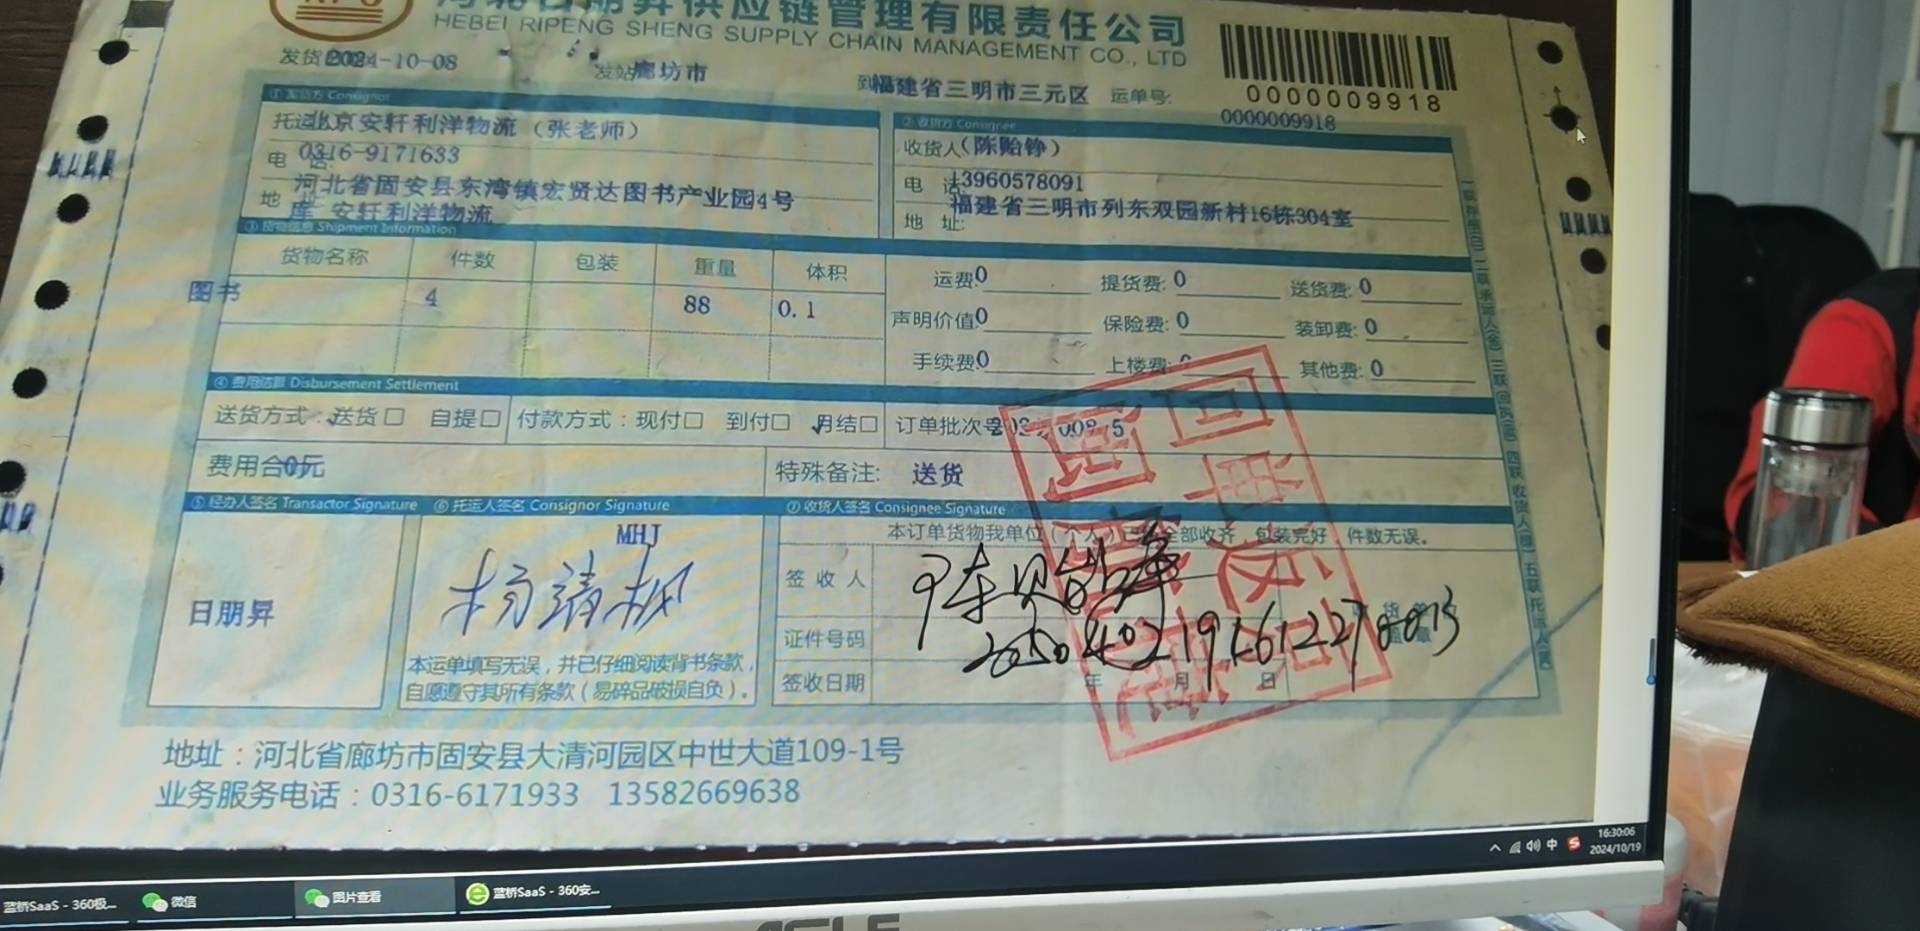 河北日朋昇供应链管理有限责任公司
HEBEI RIPENG SHENG SUPPLY CHAIN MANAGEMENT CO., LTD
发货 2024-10-08 发站 廊坊市 到 福建省三明市三元区 运单号:
0000009918
0000009918
① 发货方 Consignor
托运 北京安轩利洋物流（张老师）
电话 0316-9171633
地 河北省固安县东湾镇宏贤达图书产业园4号
库 安轩利洋物流
② 收货方 Consignee
收货人（陈贻铮）
电 话 13960578091
地 址: 福建省三明市列东双园新村16栋304室
③ 货物信息 Shipment Information
货物名称 件数 包装 重量 体积
图书 4 88 0.1
运费 0 提货费: 0 送货费: 0
声明价值 0 保险费: 0 装卸费: 0
手续费 0 上楼费: 0 其他费: 0
④ 费用结算 Disbursement Settlement
送货方式: 送货□ 自提□ 付款方式：现付□ 到付□ 月结□ 订单批次号
费用合 0元 特殊备注: 送货
⑤ 经办人签名 Transactor Signature ⑥ 托运人签名 Consignor Signature ⑦ 收货人签名 Consignee Signature
日朋昇
MHJ
本运单填写无误，并已仔细阅读背书条款，
自愿遵守其所有条款（易碎品破损自负）。
本订单货物我单位（个人）已 全部收齐，包装完好，件数无误。
签收人
证件号码
签收日期 年 月 日
地址：河北省廊坊市固安县大清河园区中世大道109-1号
业务服务电话：0316-6171933 13582669638
中
16:30:06
2024/10/19
蓝桥SaaS - 360极...
微信
图片查看
蓝桥SaaS - 360安...